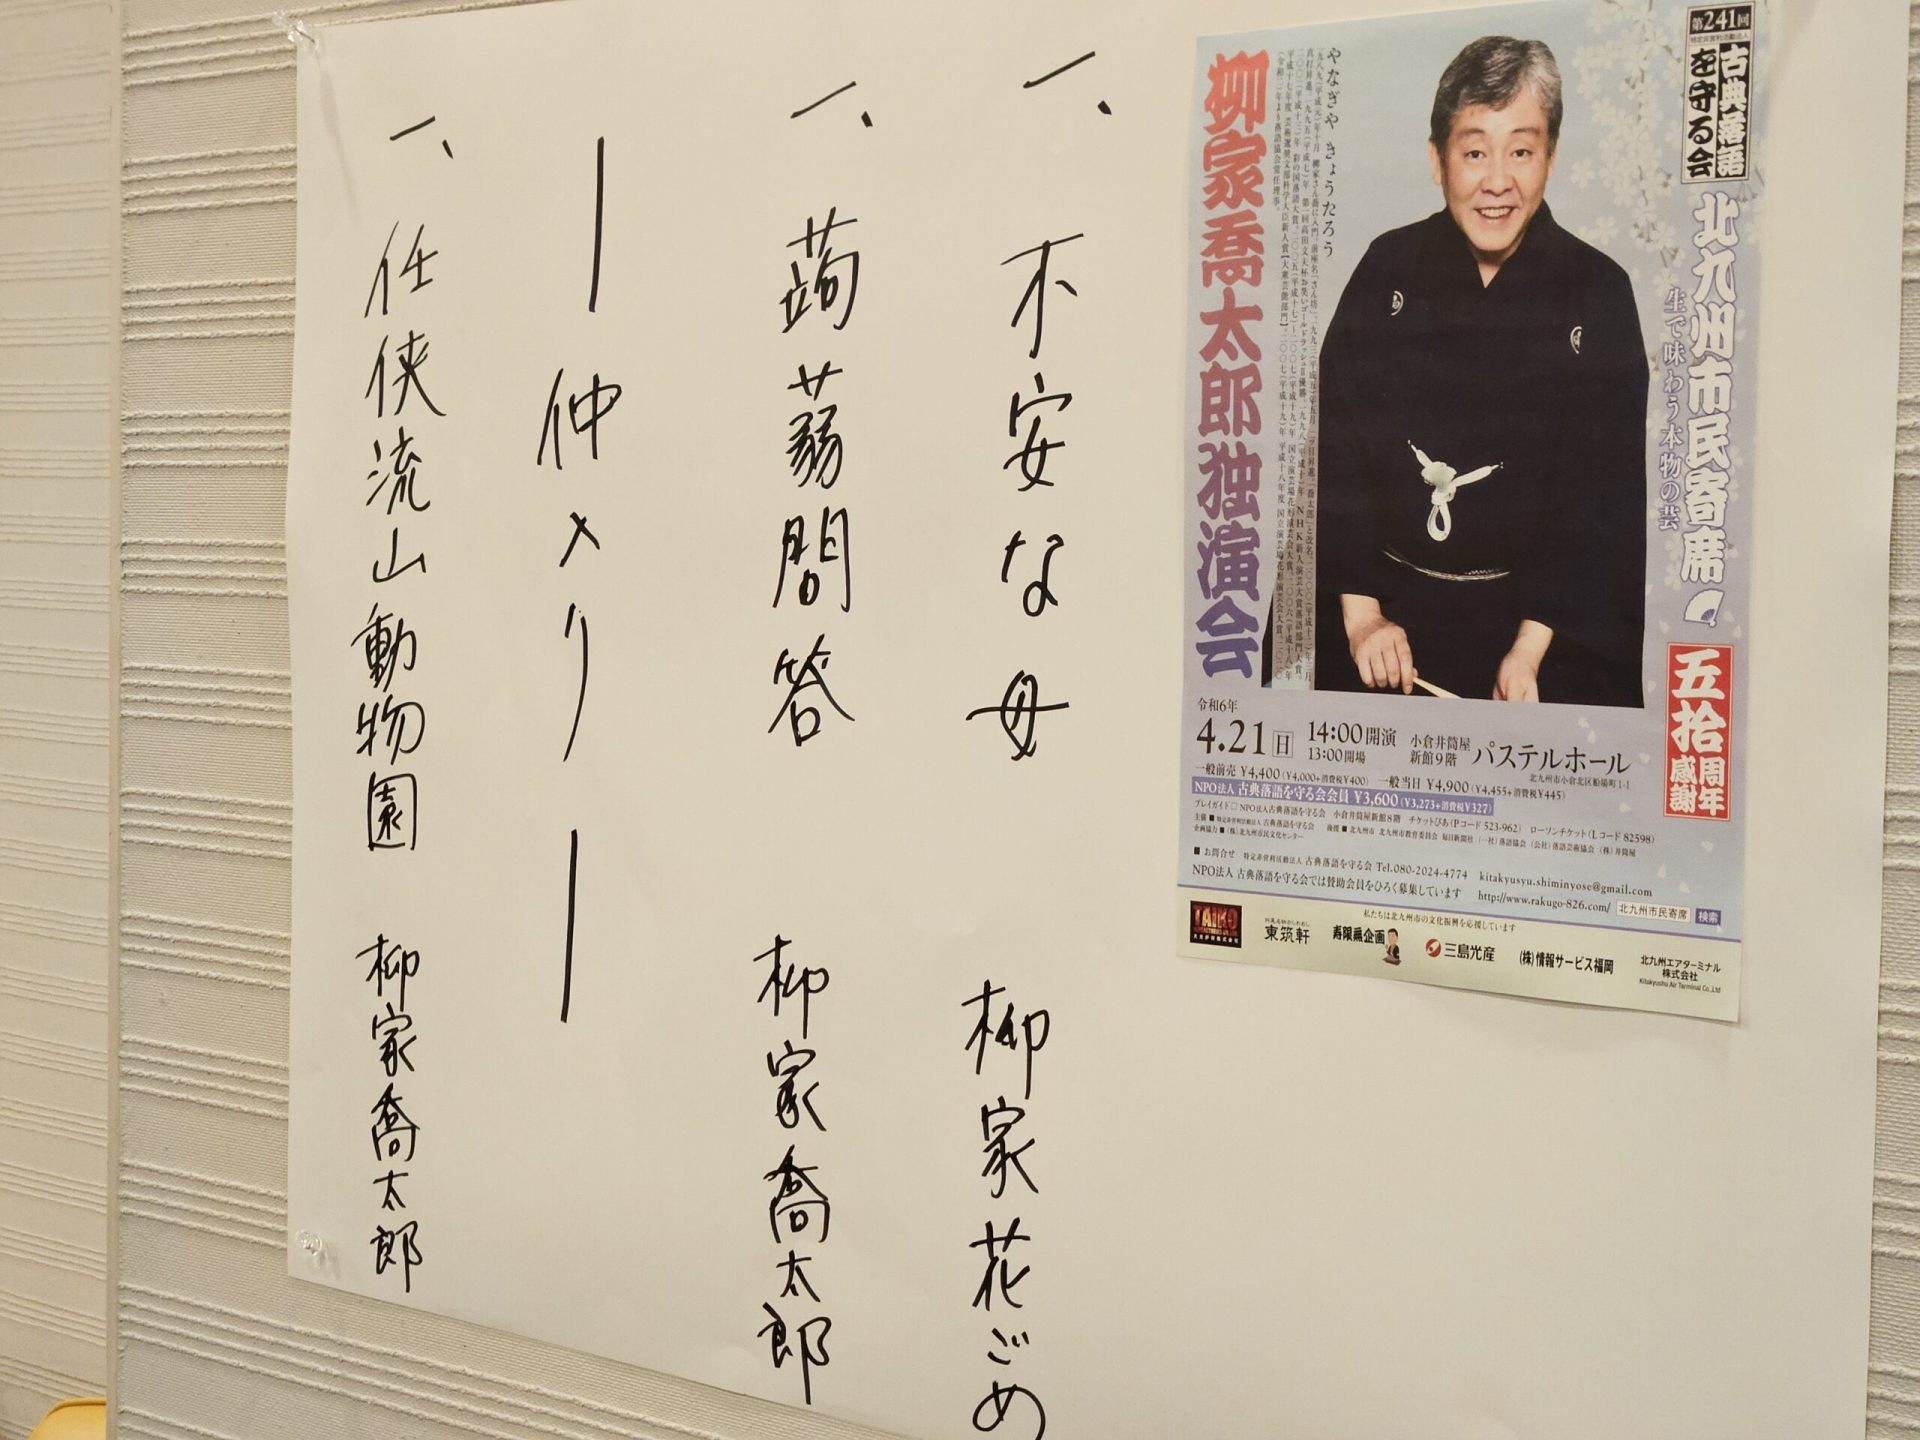 第241回
特定非営利活動法人
古典落語
を守る会
北九州市民寄席
生で味わう本物の芸
五拾周年
感謝
やなぎや きょうたろう
柳家喬太郎独演会
令和6年
4.21日
14:00開演
13:00開場
小倉井筒屋
新館9階
パステルホール
北九州市小倉北区船場町1-1
一般前売 ¥4,400(¥4,000+消費税¥400) 一般当日 ¥4,900(¥4,455+消費税¥445)
NPO法人 古典落語を守る会会員 ¥3,600(¥3,273+消費税¥327)
プレイガイド□NPO法人古典落語を守る会 小倉井筒屋新館8階 チケットぴあ(Pコード 523-962) ローソンチケット(Lコード 82598)
主催■特定非営利活動法人 古典落語を守る会 後援■北九州市 北九州市教育委員会 毎日新聞社 (一社)落語協会 (公社)落語芸術協会 (株)井筒屋
企画協力■(株)北九州市民文化センター
■お問合せ 特定非営利活動法人 古典落語を守る会 Tel.080-2024-4774 kitakyusyu.shiminyose@gmail.com
NPO法人 古典落語を守る会では賛助会員をひろく募集しています http://www.rakugo-826.com/ 北九州市民寄席 検索
私たちは北九州市の文化振興を応援しています
TAIKO
東筑軒
寿限無企画
三島光産
(株)情報サービス福岡
北九州エアターミナル
株式会社
Kitakyushu Air Terminal Co.,Ltd
一、不安な母 柳家花ごめ
一、蒟蒻問答 柳家喬太郎
―仲入り―
一、任侠流山動物園 柳家喬太郎